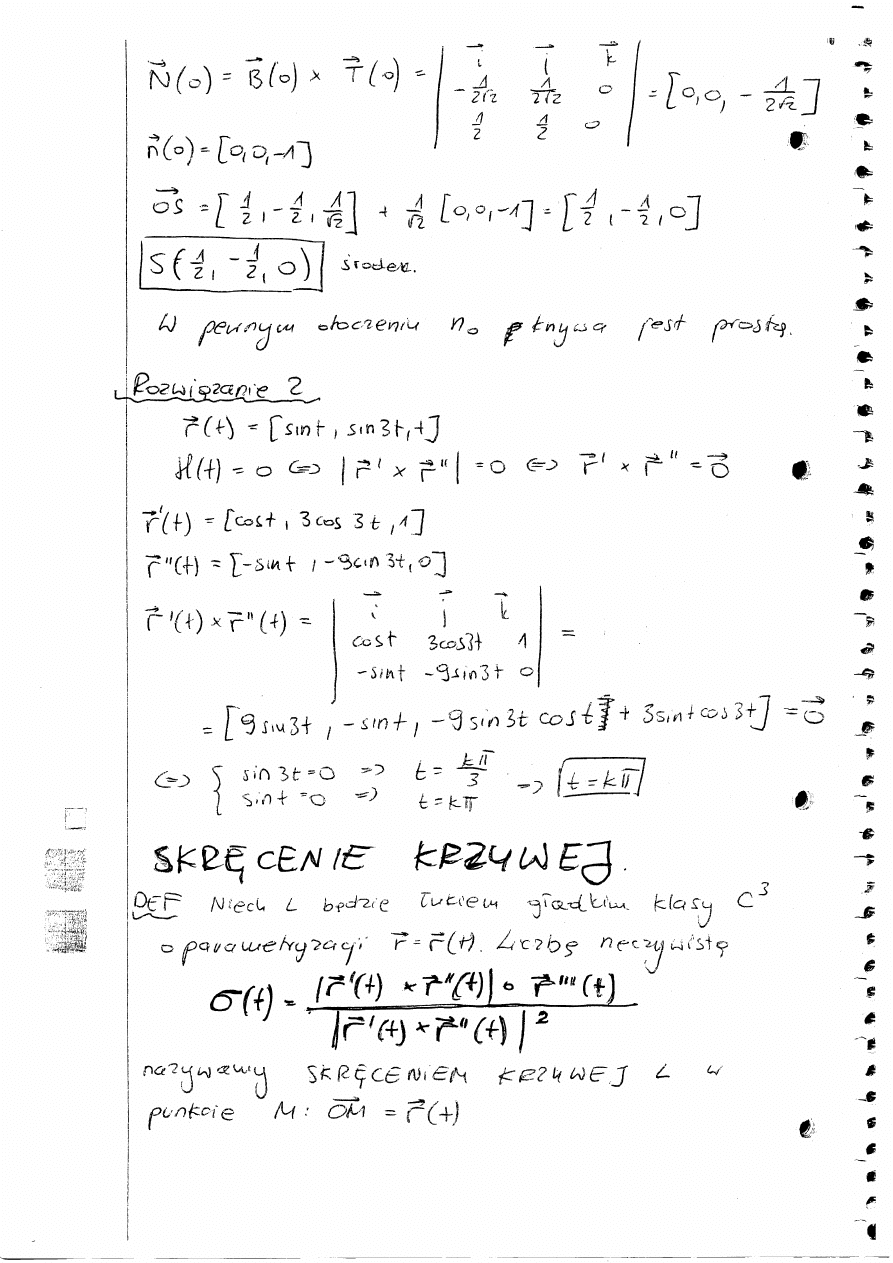 N⃗(0) = B⃗(0) × T⃗(0) = | i⃗ j⃗ k⃗ ; -1/(2√2) 1/(2√2) 0 ; 1/2 1/2 0 | = [0, 0, - 1/(2√2)]
n⃗(0) = [0,0,-1]
OS⃗ = [1/2, -1/2, 1/√2] + 1/√2 [0,0,-1] = [1/2, -1/2, 0]
S(1/2, -1/2, 0) środek.
W pewnym otoczeniu no krzywa jest prostą.
Rozwiązanie 2
r⃗(t) = [sint, sin3t, t]
ℋ(t) = 0 ⇔ |r⃗' × r⃗''| = 0 ⇔ r⃗' × r⃗'' = 0⃗
r⃗'(t) = [cost, 3cos 3t, 1]
r⃗''(t) = [-sint, -9sin 3t, 0]
r⃗'(t) × r⃗''(t) = | i⃗ j⃗ k⃗ ; cost 3cos3t 1 ; -sint -9sin3t 0 | =
= [9sin3t, -sint, -9sin3t cost + 3sintcos3t] = 0⃗
⇔ { sin 3t=0 => t = kπ/3 ; sint=0 => t=kπ => t=kπ
SKRĘCENIE KRZYWEJ.
DEF Niech L będzie łukiem gładkim klasy C³
o parametryzacji r⃗ = r⃗(t). Liczbę rzeczywistą
σ(t) = |r⃗'(t) × r⃗''(t)| ∘ r⃗'''(t) / |r⃗'(t) × r⃗''(t)|²
nazywamy SKRĘCENIEM KRZYWEJ L w
punkcie M: OM⃗ = r⃗(t)